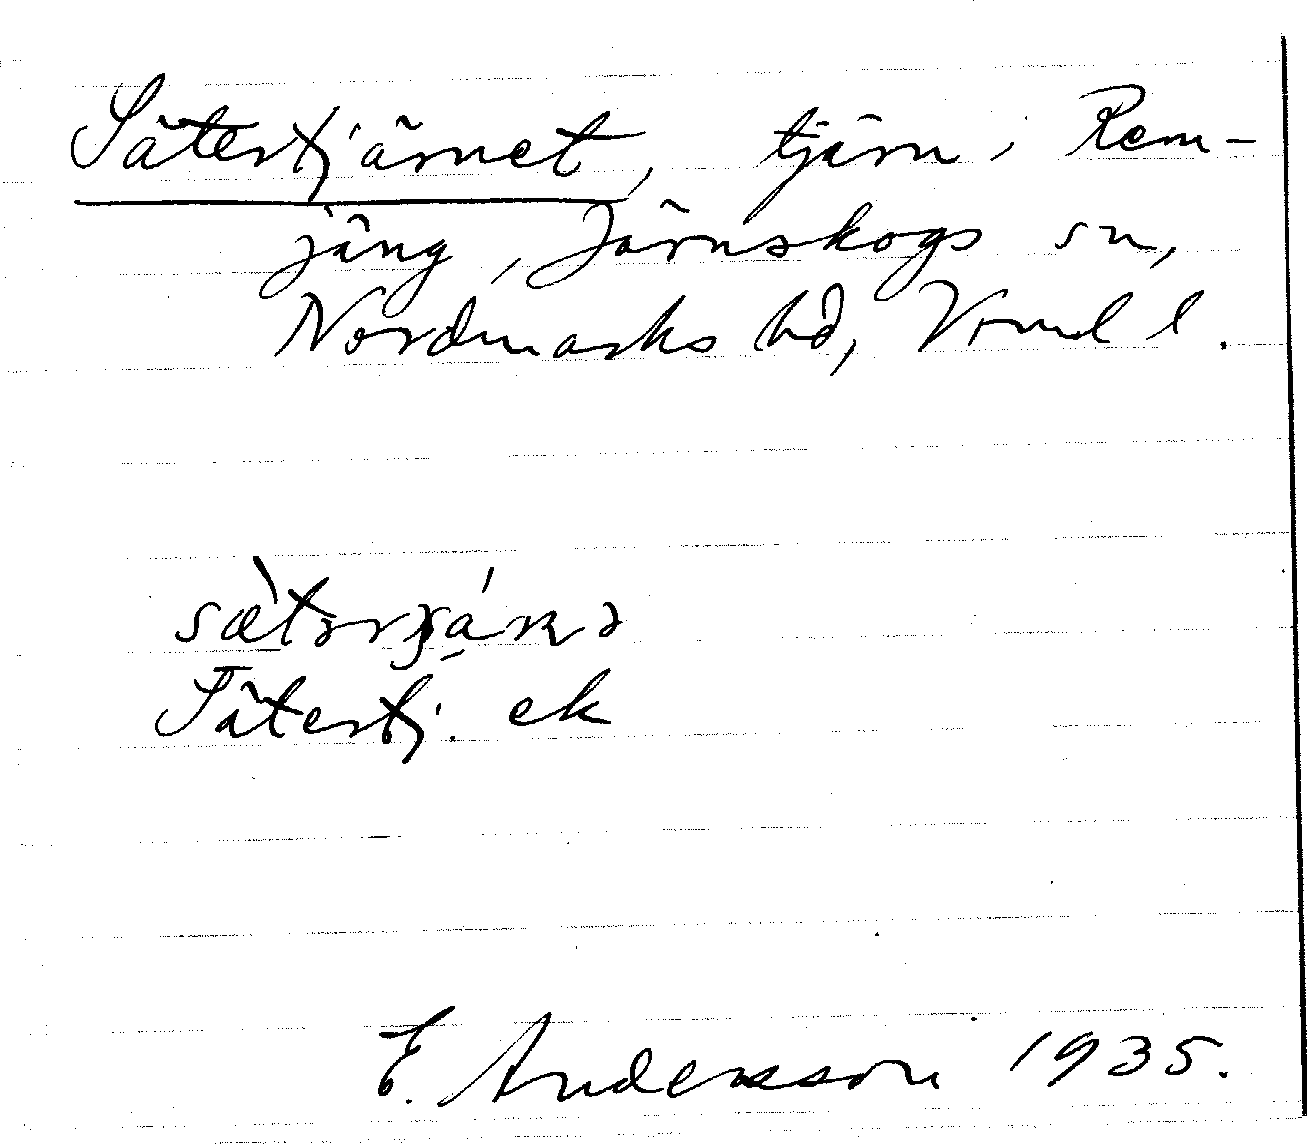 Sätertjärnet, tjärn i Rem-
jäng, Järnskogs sn,
Nordmarks hd, Vrml l.
Sätertj. ek
E. Andersson 1935.